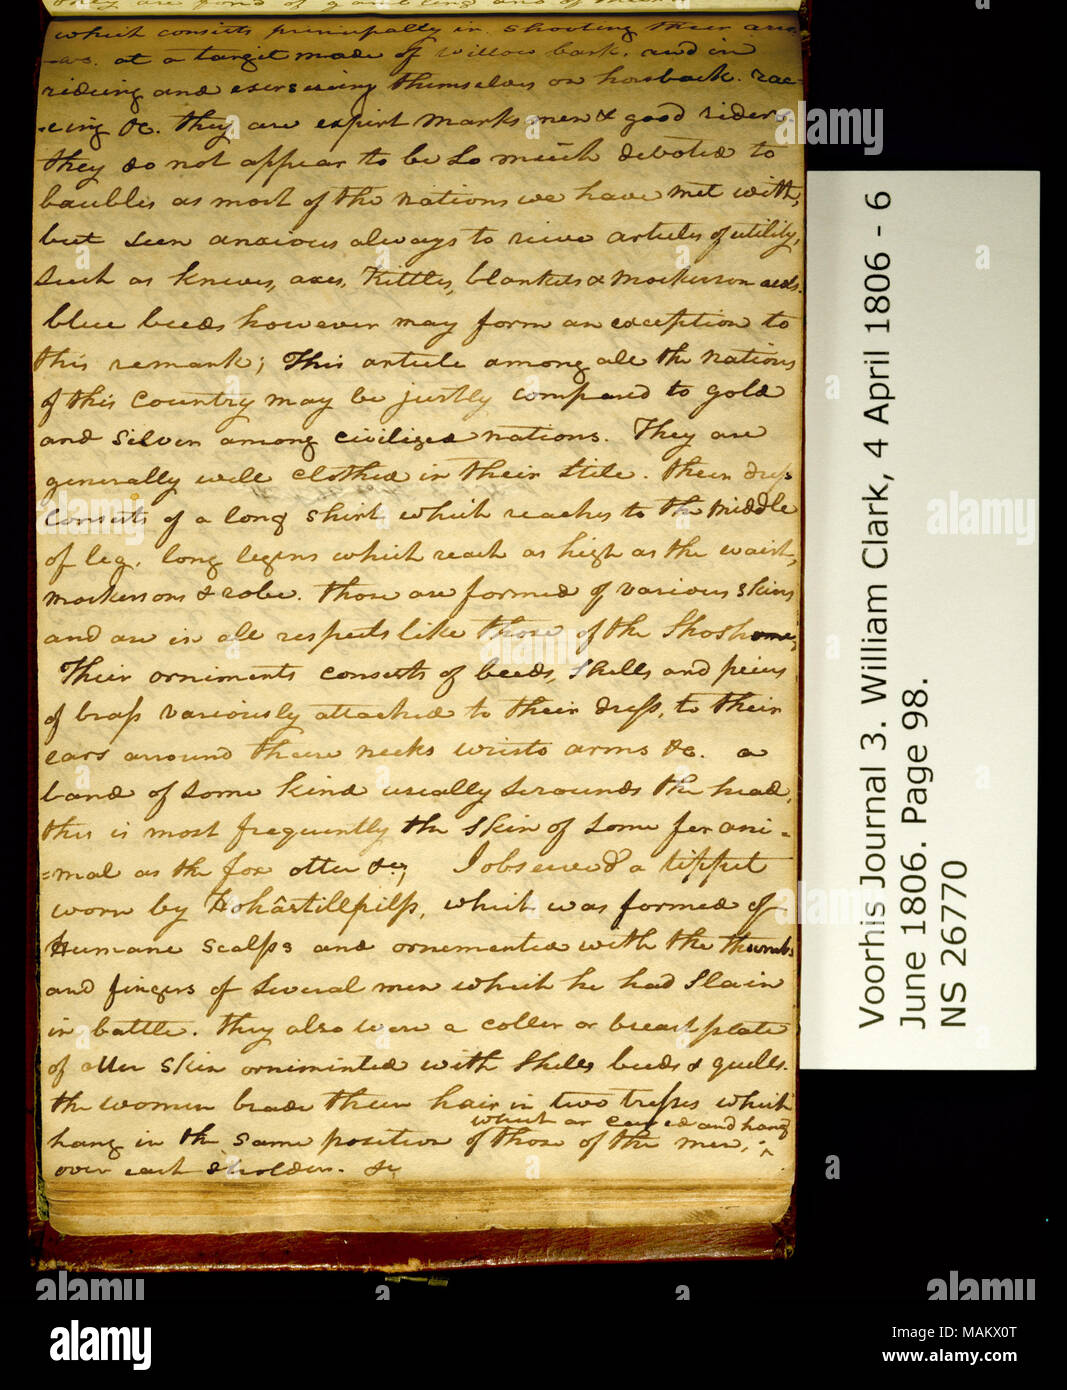 they are fond of gambling and of their
which consists principally in shooting their arro
-ws. at a target made of willow bark. and in
rideing and exersiseing themselves on horsback. rac-
-eing &c. they are expirt marks men & good riders.
they do not appear to be So much devoted to
baubles as most of the nations we have met with,
but seem anxious always to riceive articles of utility,
Such as knives, axes, Kittles, blankets & Mockerson awls.
blue beeds however may form an exception to
this remark; This article among all the nations
of this Country may be justly compared to gold
and Silver among civilized nations. They are
generally well clothed in their Stile. their dress
Consists of a long shirt which reaches to the middle
of leg, long legins which reach as high as the waist,
Mockersons & robe. those are formed of various skins
and are in all respects like those of the Shoshone;
Their orniments consists of beeds, Shells and peices
of brass variously attached to their dress, to their
ears arround their necks wrists arms &c. a
band of Some kind usually Serounds the head,
this is most frequently the Skin of Some fer ani=
=mal as the fox otter &c;  I observed a tippet
worn by Hohâstillpilp, which was formed of
Humane Scalps and ornemented with the thumbs
and fingers of Several men which he had Slain
in battle. they also were a coller or breast plate
of otter Skin orniminted with Shells beeds & quills.
the women brade their hair in two tresses which
hang in the Same position of those of the men,
which ar and hang
over each Sholder. &c
Voorhis Journal 3. William Clark, 4 April 1806 - 6
June 1806. Page 98.
NS 26770
alamy
a
alamy
Image ID: MAKX0T
www.alamy.com